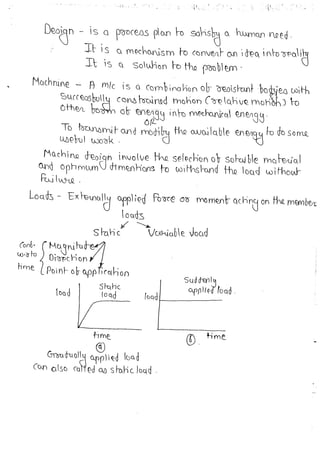 Design - is a process plan to satisfy a human need.
It is a mechanism to convert an idea into reality
It is a solution to the problem.
Machnine - A m/c is a combination of resistant bodies with
successfully constrained motion (relative motion) to
other form of energy into mechanical energy.
OR
To transmit and modify the available energy to do some
useful work.
Machine design involve the selection of suitable material
and optimum dimentions to withstand the load without
failure.
Loads - Externally applied force or moment acting on the member
loads
Static Variable load
Const.
w.r.to
time
Magnitude
Direction
Point of application
load
Static
load
time
(a)
Gradually applied load
Can also called as static load.
load
Suddenly
applied load.
time
(b)